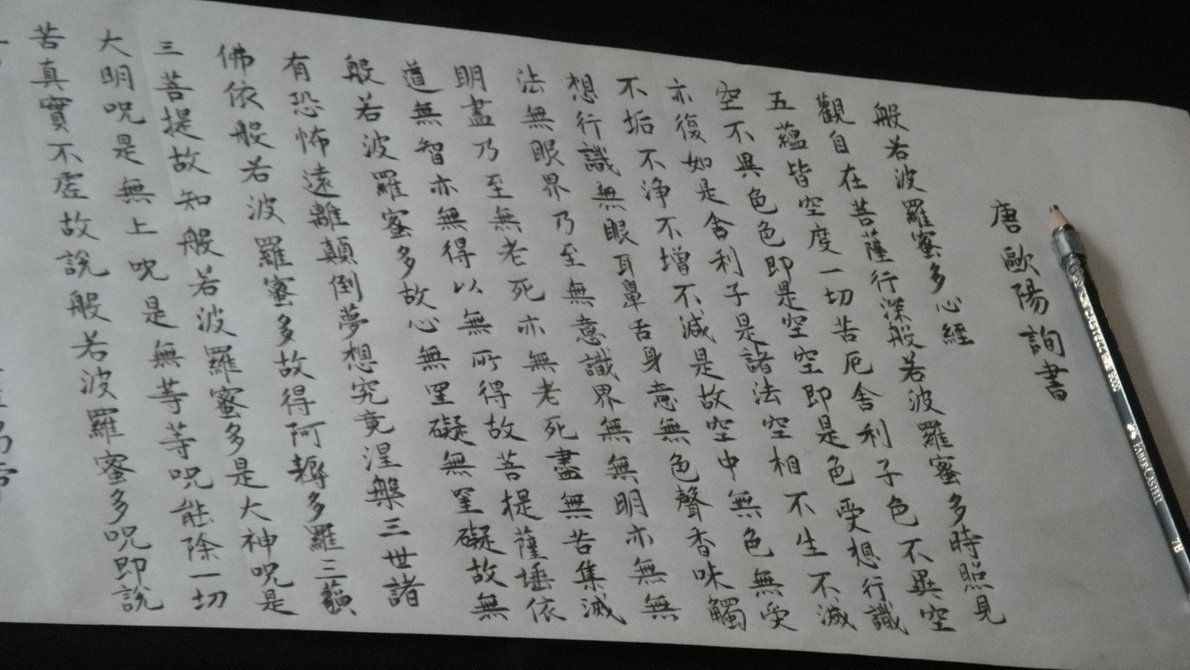 唐歐陽詢書
般若波羅蜜多心經
觀自在菩薩行深般若波羅蜜多時照見
五蘊皆空度一切苦厄舍利子色不異空
空不異色色即是空空即是色受想行識
亦復如是舍利子是諸法空相不生不滅
不垢不淨不增不減是故空中無色無受
想行識無眼耳鼻舌身意無色聲香味觸
法無眼界乃至無意識界無無明亦無無
明盡乃至無老死亦無老死盡無苦集滅
道無智亦無得以無所得故菩提薩埵依
般若波羅蜜多故心無罣礙無罣礙故無
有恐怖遠離顛倒夢想究竟涅槃三世諸
佛依般若波羅蜜多故得阿耨多羅三藐
三菩提故知般若波羅蜜多是大神呪是
大明呪是無上呪是無等等呪能除一切
苦真實不虛故說般若波羅蜜多呪即說
FABER-CASTELL